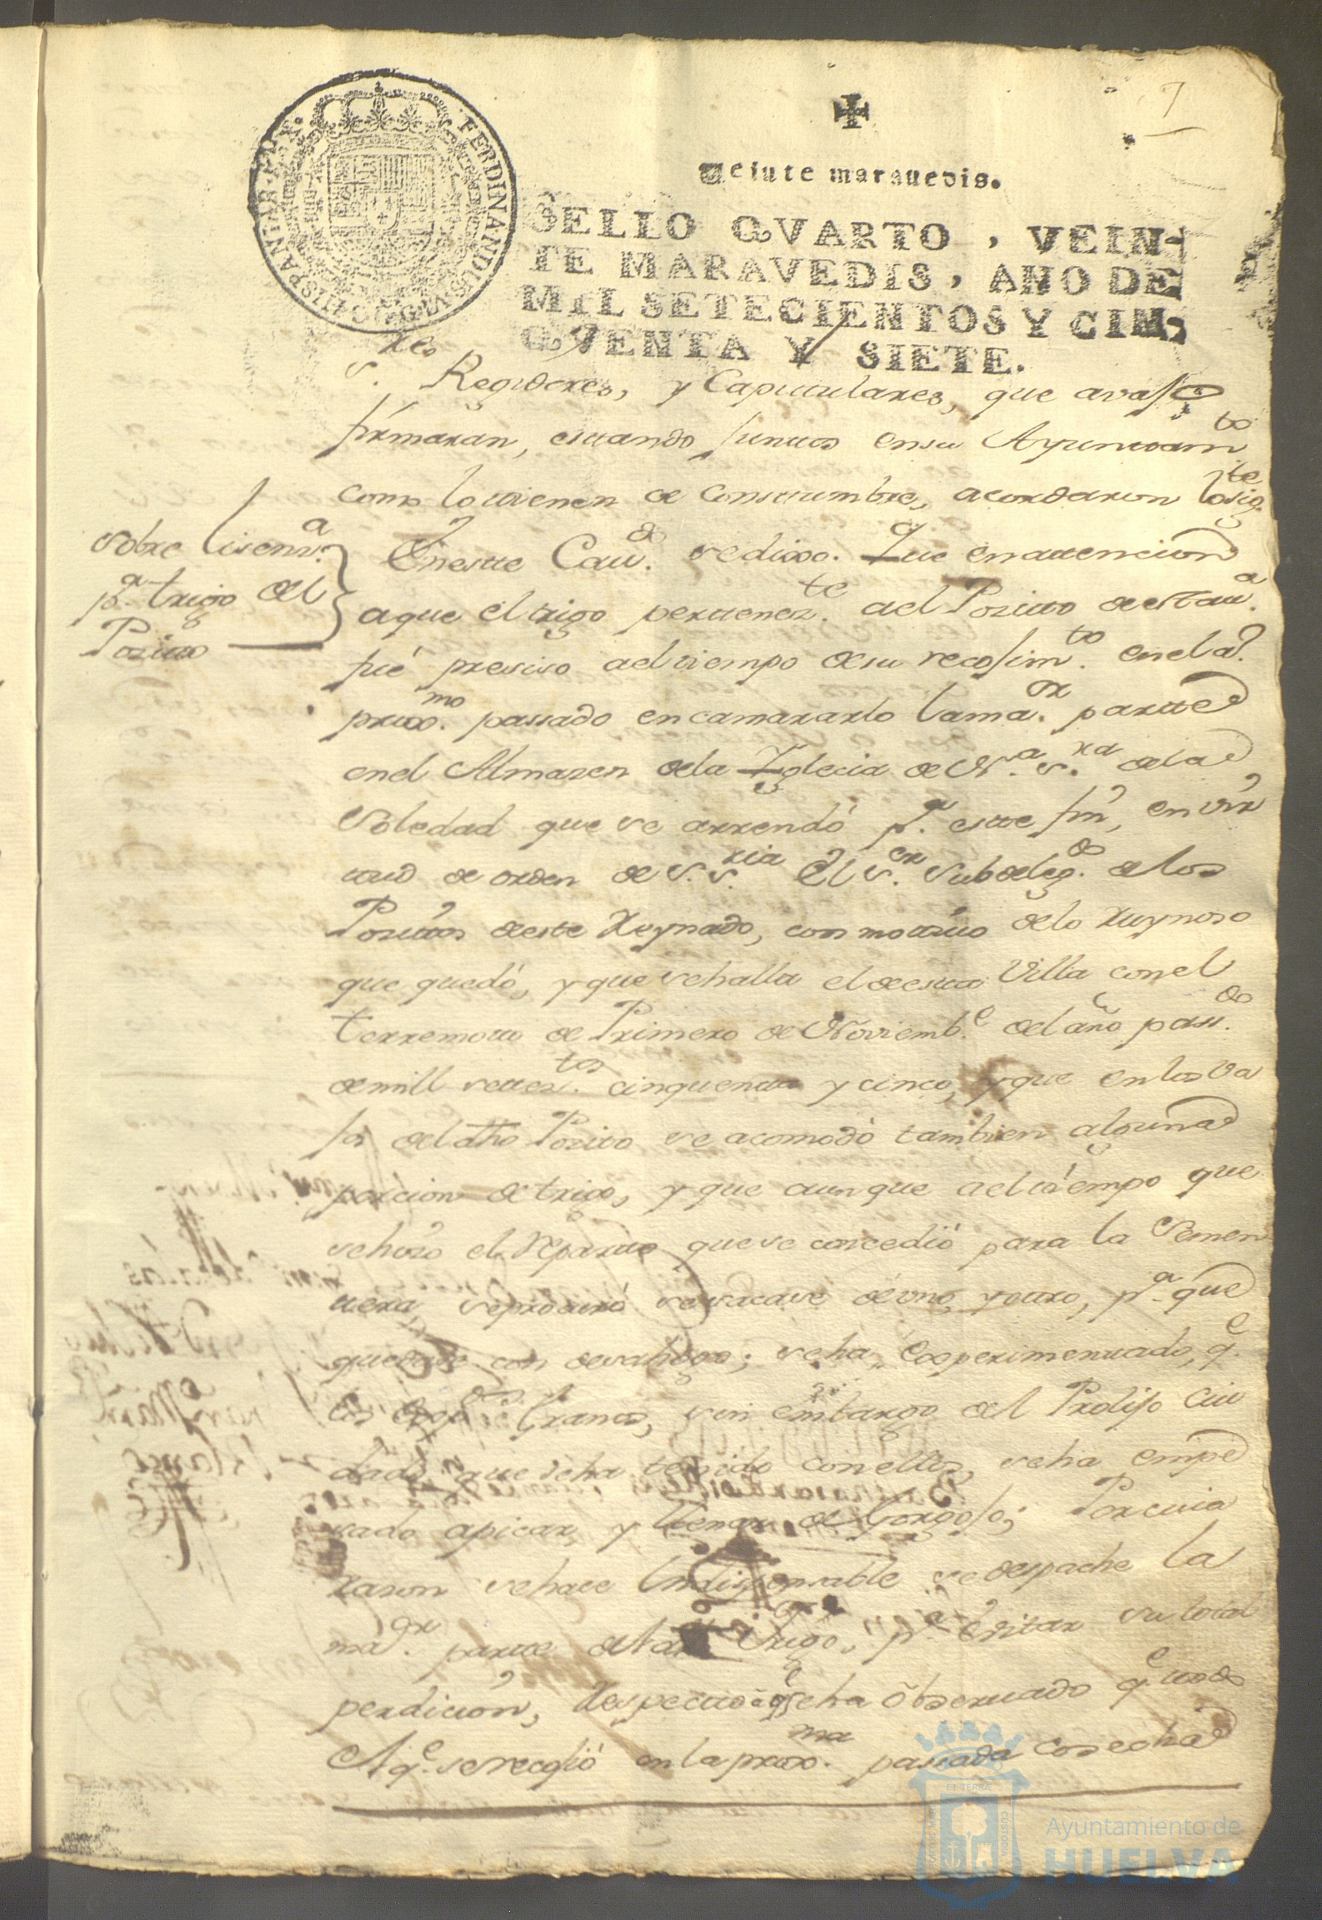 7
Veinte maravedis.
SELLO QVARTO, VEIN-
TE MARAVEDIS, AÑO DE
MIL SETECIENTOS Y CIN-
QVENTA Y SIETE.
FERDINANDUS VI D G HISPANIAR REX
S.res Regidores, y Capitulares, que avajo
firmaran, estando juntos en su Ayuntam.to
como lo tienen de Constumbre, acordaron lo sig.te
Sobre lisens.a
p.a trigo del
Pozitto
En este Cav.do se dixo. Que en attencion
a que el trigo pertenez.te al Pozitto de esta v.a
fué presiso al tiempo de su recojim.to en el a.o
prox.mo passado encamararlo la ma.or partte
en el Almazen de la Yglecia de N.a S.ra de la
Soledad que se arrendó p.a este fin, en vir
tud de orden de S. S.ria el S.or Subdeleg.do de los
Pozittos de este Reynado, con motivo de lo Ruynoso
que quedó, y que se halla el de esta Villa con el
terremotto de Primero de Noviemb.e del año pass.do
de mill settez.tos cinquenta y cinco, y que en los va
jos del dho Pozito se acomodó tambien alguna
porcion de trigo, y que aunque al tiempo que
se hizo el Repartto que se concedió para la Semen
tera, se procuró se sacase de uno, y otro, p.a que
quedase con desahogo; se ha experimentado, q.e
los Granos, sin embargo del Prolijo Cui
dado que se ha tenido con ellos, se ha empe
zado apicar, y llenar de Gorgojo; Por cuia
razon se hace Indispensable se despache la
ma.or parte de tal trigo, p.a Evitar su total
perdicion, Respecto a q.e se ha observado q.e todo
el q.e se recojió en la prox.ma passada cosecha
Ayuntamiento de
HUELVA